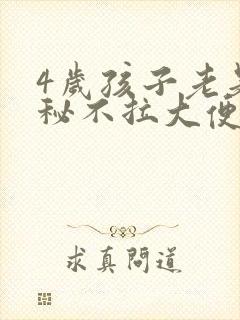 4歲孩子老
秘不拉大便
求真問道